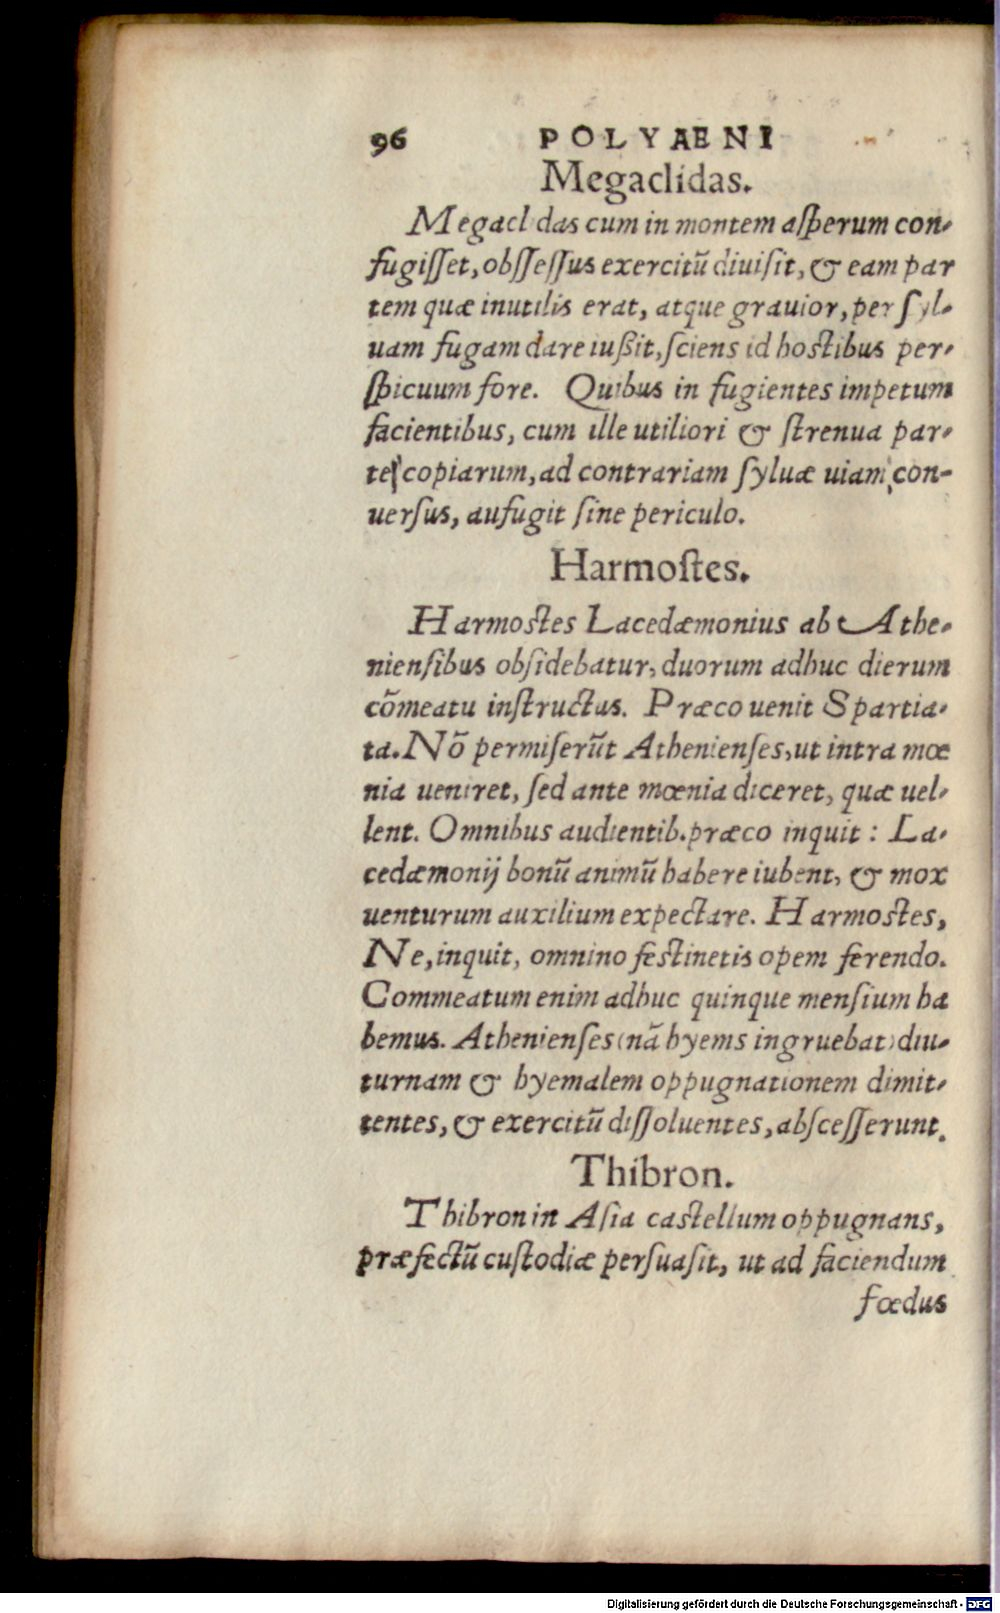 96 POLYAENI
Megaclidas.
Megacl das cum in montem asperum con-
fugisset, obssessus exercitū diuisit, & eam par
tem quæ inutilis erat, atque grauior, per syl-
uam fugam dare iußit, sciens id hostibus per-
spicuum fore. Quibus in fugientes impetum
facientibus, cum ille utiliori & strenua par-
te copiarum, ad contrariam syluæ uiam con-
uersus, aufugit sine periculo.
Harmostes.
Harmostes Lacedæmonius ab Athe-
niensibus obsidebatur, duorum adhuc dierum
cōmeatu instructus. Præco uenit Spartia-
ta. Nō permiserūt Athenienses, ut intra mœ
nia ueniret, sed ante mœnia diceret, quæ uel-
lent. Omnibus audientib. præco inquit : La-
cedæmonij bonū animū habere iubent, & mox
uenturum auxilium expectare. Harmostes,
Ne, inquit, omnino festinetis opem ferendo.
Commeatum enim adhuc quinque mensium ha
bemus. Athenienses (nā hyems ingruebat) diu-
turnam & hyemalem oppugnationem dimit-
tentes, & exercitū dissoluentes, abscesserunt.
Thibron.
Thibron in Asia castellum oppugnans,
præfectū custodiæ persuasit, ut ad faciendum
fœdus
Digitalisierung gefördert durch die Deutsche Forschungsgemeinschaft - DFG